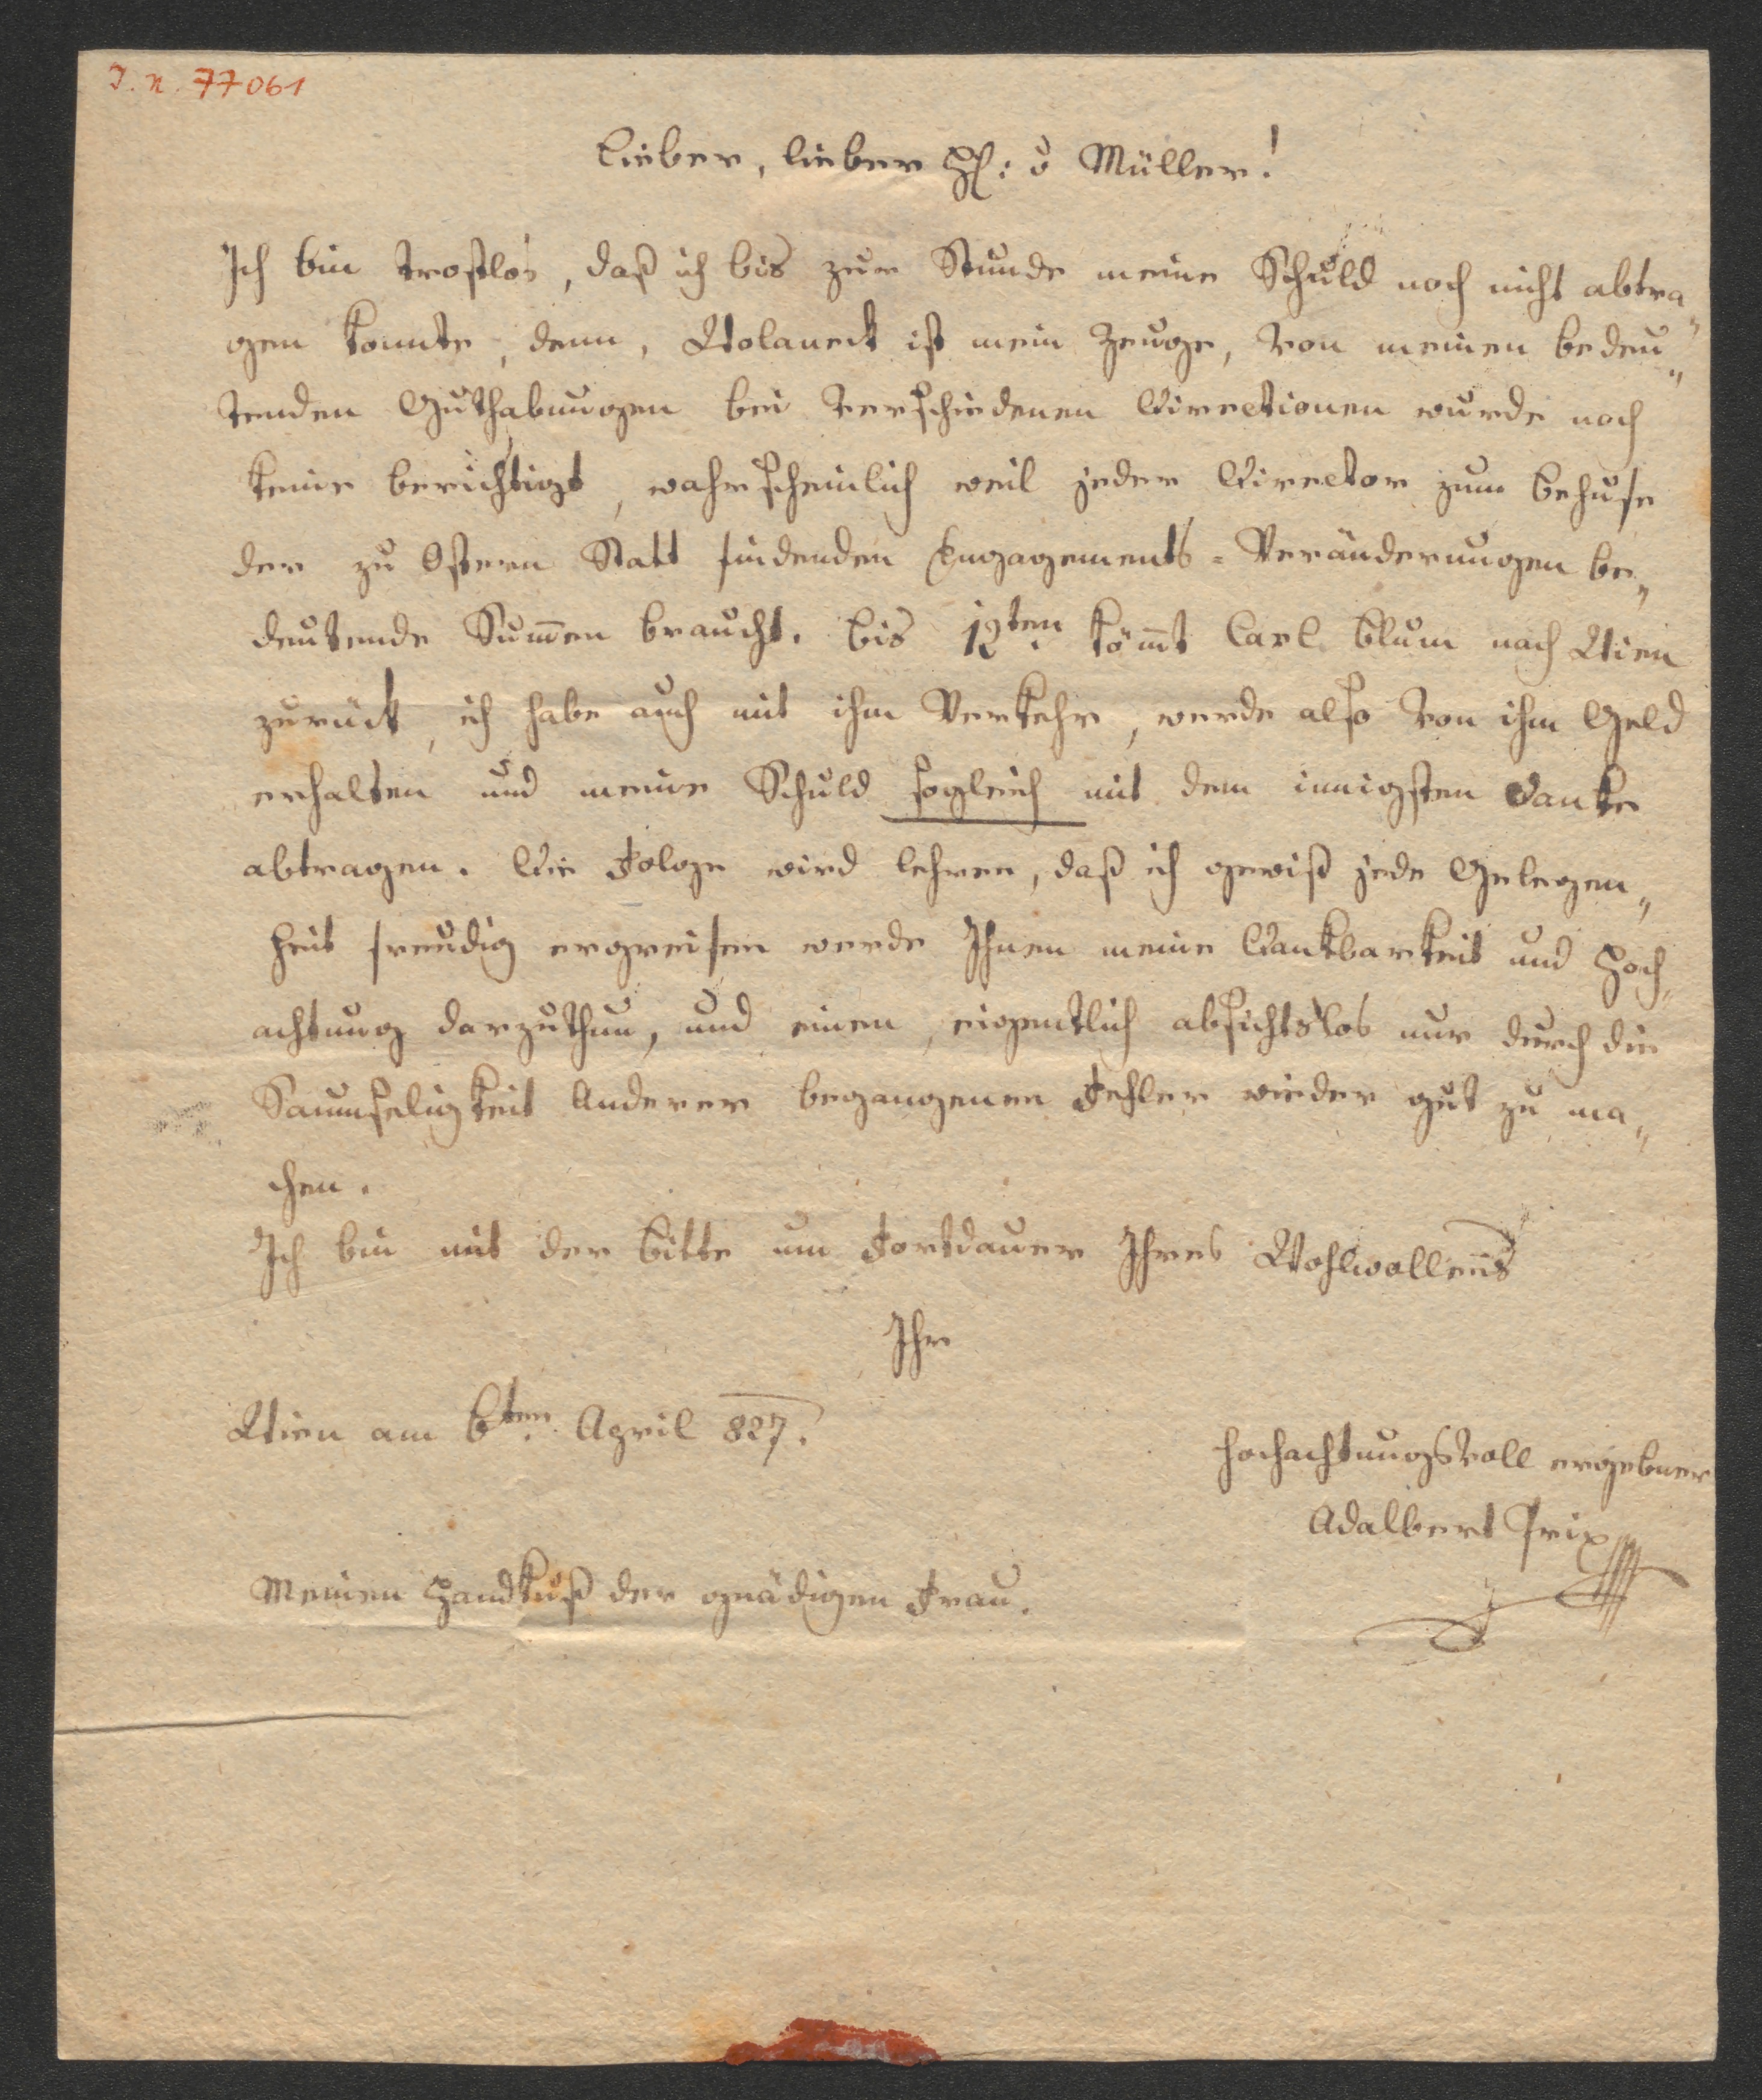 I. N. 77061
Lieber, lieber H: v Müller!
Ich bin trostlos, daß ich bis zur Stunde meine Schuld noch nicht abtra„
gen konnte, denn, Wolaneck ist mein Zeuge, von meinen bedeu„
tenden Guthabungen bei verschiedenen Directionen wurde noch
keine berichtigt, wahrscheinlich weil jeder Director zum Behufe
der zu Ostern Statt findenden Engagements-Veränderungen be„
deutende Sum̅en braucht. Bis 12ten. köm̅t Carl Blum nach Wien
zurück, ich habe auch mit ihm Verkehr, werde also von ihm Geld
erhalten und meine Schuld sogleich mit dem innigsten Danke
abtragen. Die Folge wird lehren, daß ich gewiß jede Gelegen„
heit freudig ergreifen werde Ihnen meine Dankbarkeit und Hoch„
achtung darzuthun, und einen, eigentlich absichtslos nur durch die
Saumseligkeit Anderer begangenen Fehler wieder gut zu ma„
chen.
Ich bin mit der Bitte um Fortdauer Ihres Wohlwollens
Ihr
Wien am 6ten. April 827.
hochachtungsvoll ergebner
Adalbert Prix
Meinen Handkuß der gnädigen Frau.